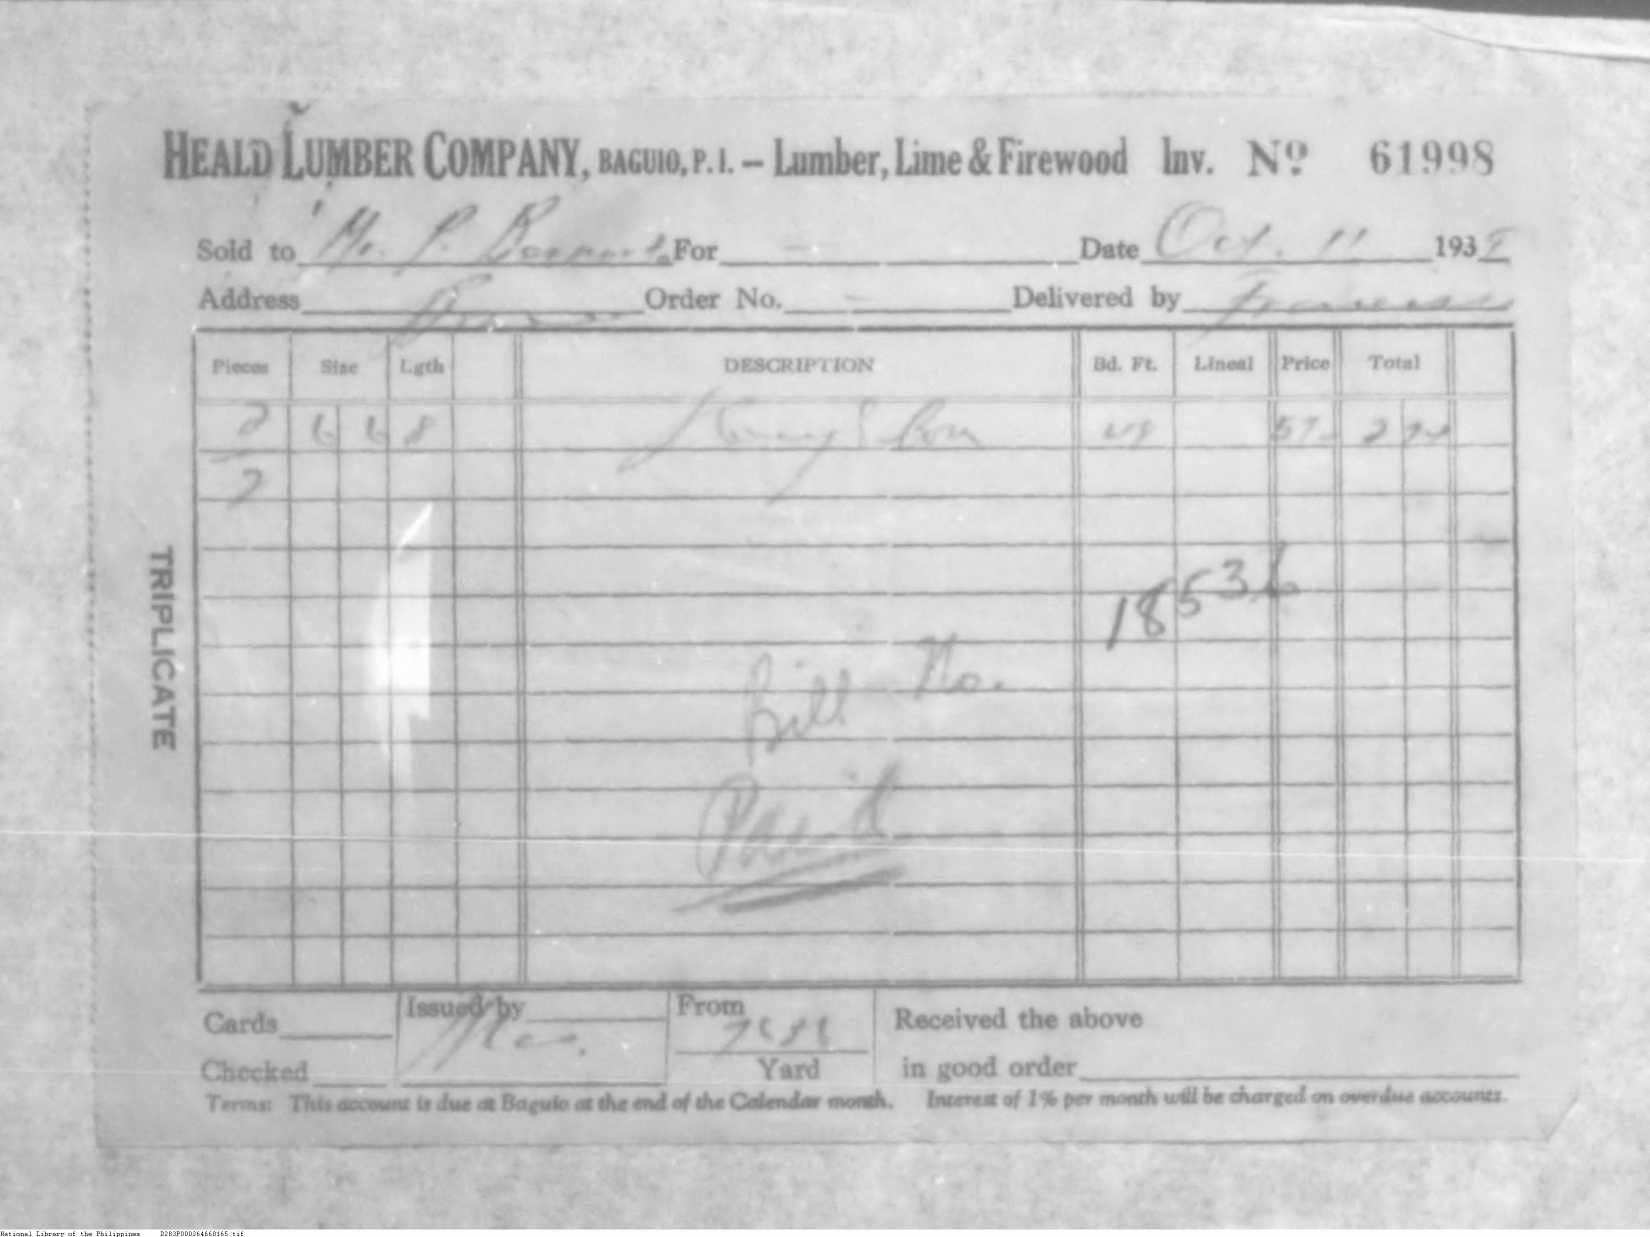 HEALD LUMBER COMPANY, BAGUIO, P. I. – Lumber, Lime & Firewood Inv. Nº 61998
Sold to Mr. P. For – Date Oct. 11 193
Address Order No. – Delivered by
Pieces Size Lgth DESCRIPTION Bd. Ft. Lineal Price Total
2 6 6 8 48 57 2
2
TRIPLICATE
18536
Bill No.
Paid
Cards Issued by From
Received the above
Checked Yard in good order
Terms: This account is due at Baguio at the end of the Calendar month. Interest of 1% per month will be charged on overdue accounts.
National Library of the Philippines D283P000264660165.tif